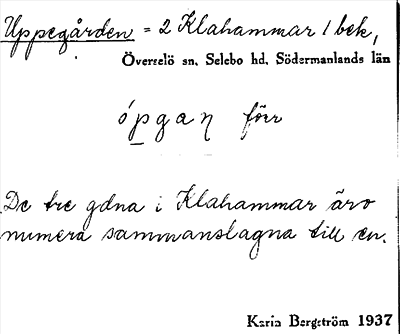 Uppegården = 2 Klahammar / bek,
Överselö sn, Selebo hd, Södermanlands län
ópgaꞃ förr
De tre gdna i Klahammar äro
numera sammanslagna till en.
Karin Bergström 1937